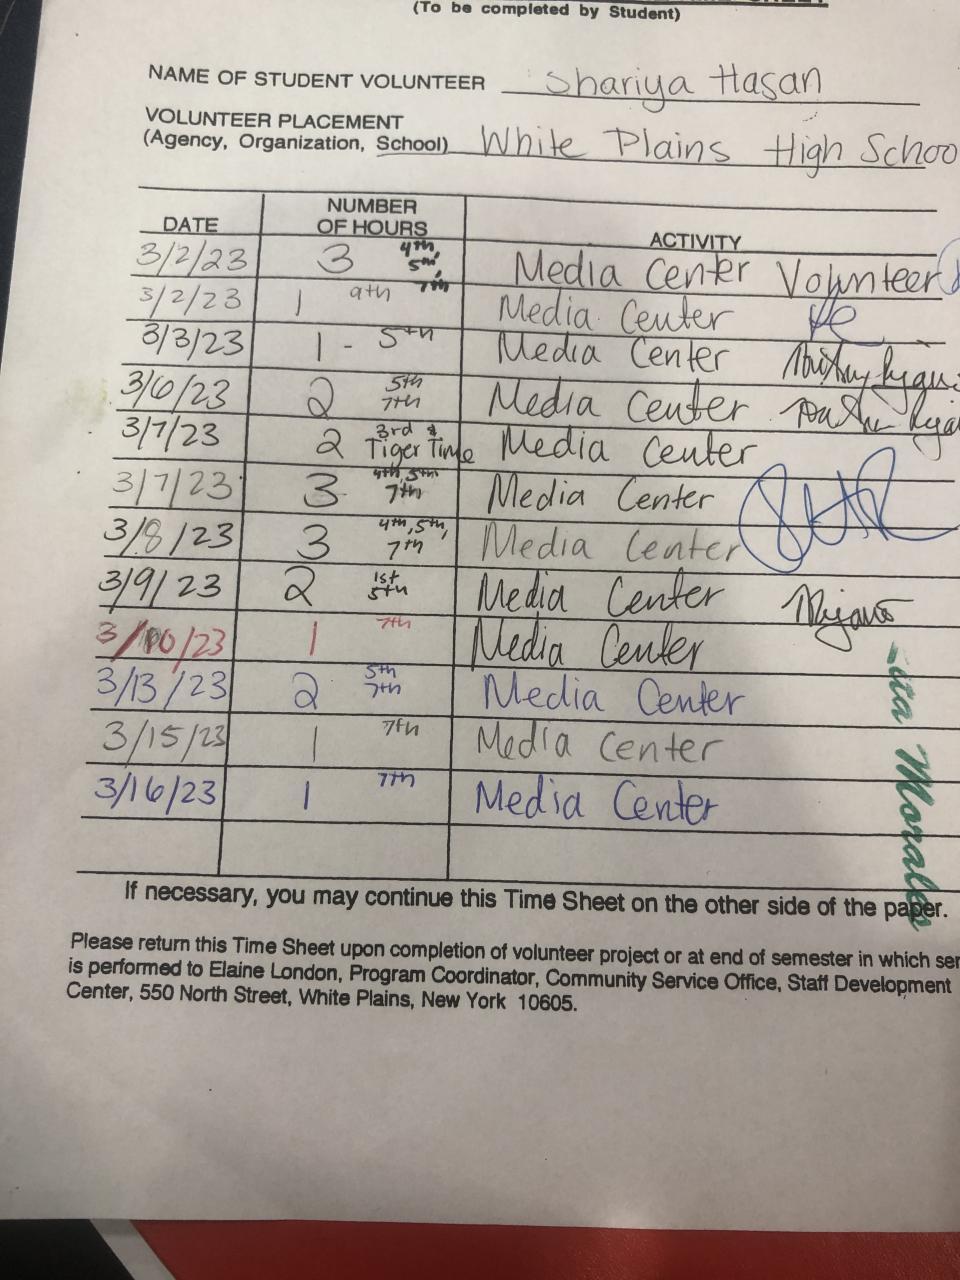 (To be completed by Student)
NAME OF STUDENT VOLUNTEER Shariya Hasan
VOLUNTEER PLACEMENT
(Agency, Organization, School) White Plains High Schoo
DATE NUMBER OF HOURS ACTIVITY
3/2/23 3 4th, 5th, 7th Media Center Volunteer
3/2/23 1 9th Media Center
3/3/23 1 - 5th Media Center
3/6/23 2 5th 7th Media Center
3/7/23 2 3rd & Tiger Time Media Center
3/7/23 3 4th, 5th 7th Media Center
3/8/23 3 4th, 5th, 7th Media Center
3/9/23 2 1st 5th Media Center
3/10/23 1 7th Media Center
3/13/23 2 5th 7th Media Center
3/15/23 1 7th Media Center
3/16/23 1 7th Media Center
Morales
If necessary, you may continue this Time Sheet on the other side of the paper.
Please return this Time Sheet upon completion of volunteer project or at end of semester in which ser
is performed to Elaine London, Program Coordinator, Community Service Office, Staff Development
Center, 550 North Street, White Plains, New York 10605.